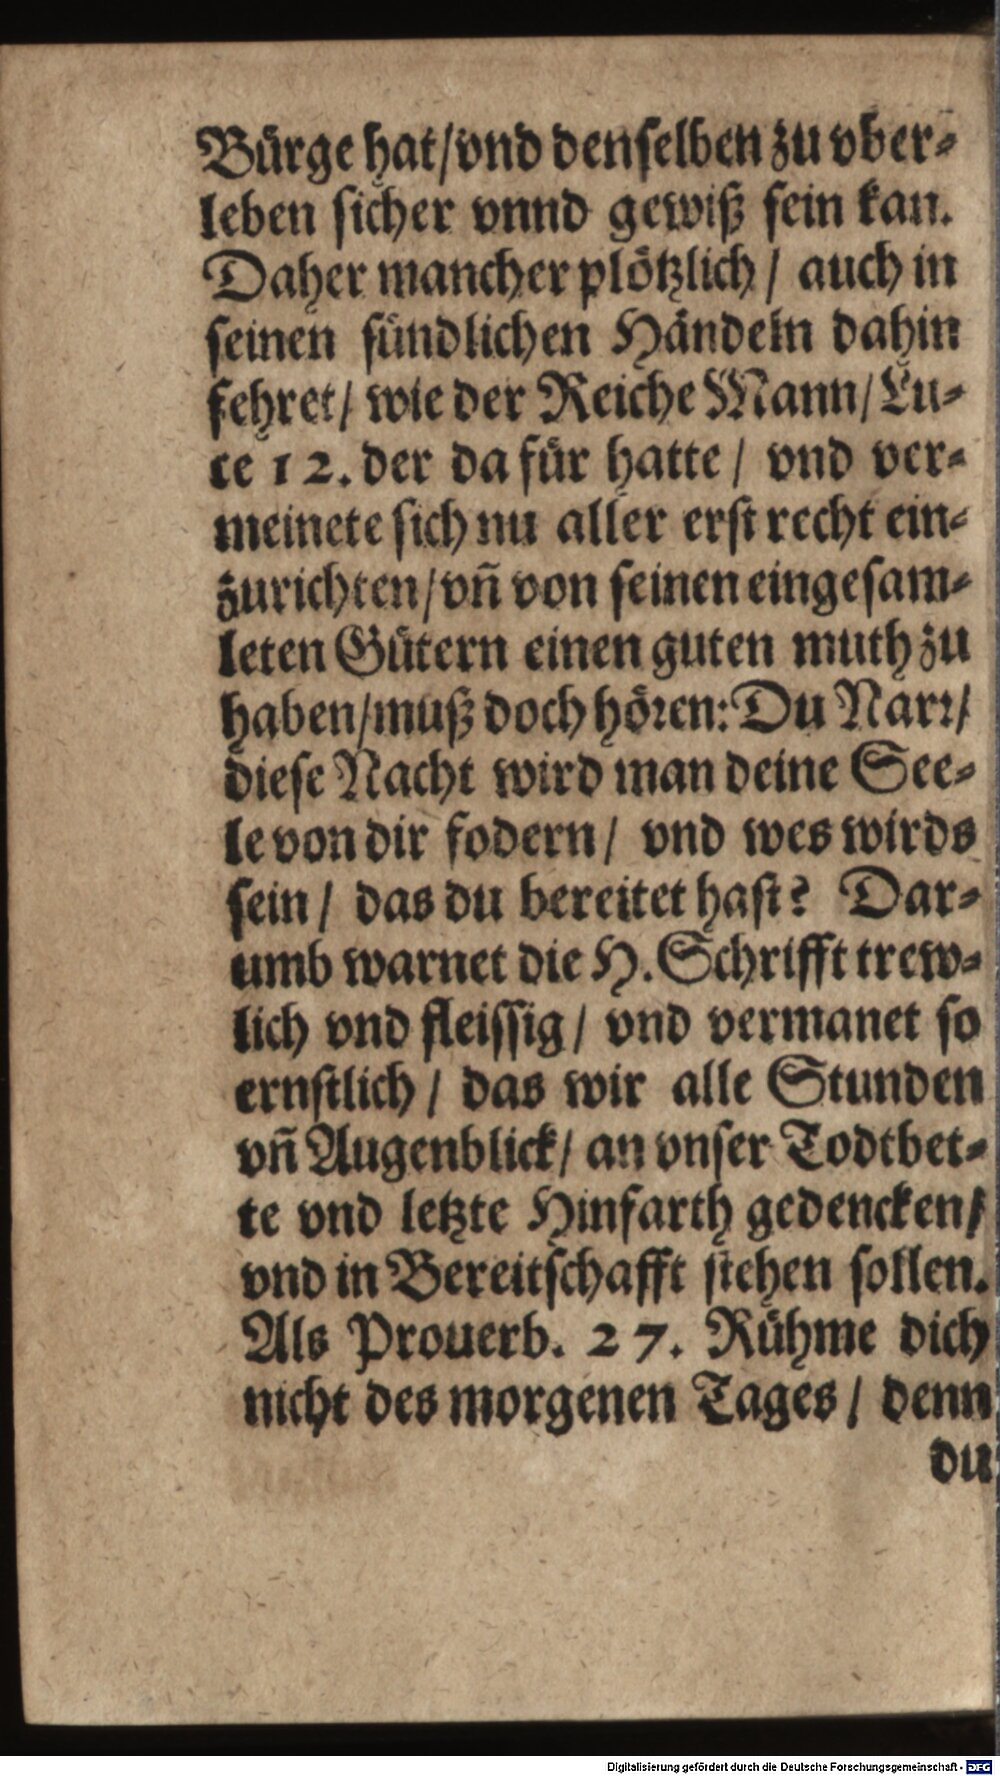 Bürge hat/vnd denſelben zu vber-
leben ſicher vnnd gewiß ſein kan.
Daher mancher plötzlich/ auch in
ſeinen ſündlichen Händeln dahin
fehret/ wie der Reiche Mann/Lu-
ce 12. der da für hatte/ vnd ver-
meinete ſich nu aller erſt recht ein-
zurichten/vn̄ von ſeinen eingeſam-
leten Gütern einen guten muth zu
haben/muß doch höꝛen: Du Narꝛ/
dieſe Nacht wird man deine See-
le von dir fodern/ vnd wes wirds
ſein/ das du bereitet haſt? Dar-
umb warnet die H. Schrifft trew-
lich vnd fleiſſig/ vnd vermanet ſo
ernſtlich/ das wir alle Stunden
vn̄ Augenblick/ an vnſer Todtbet-
te vnd letzte Hinfarth gedencken/
vnd in Bereitſchafft ſtehen ſollen.
Als Prouerb. 27. Rühme dich
nicht des morgenen Tages/ denn
du
Digitalisierung gefördert durch die Deutsche Forschungsgemeinschaft - DFG